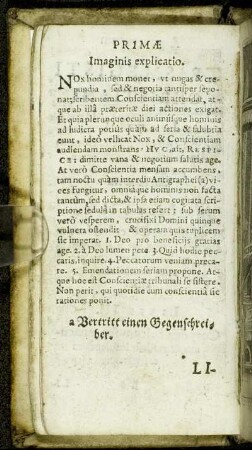 PRIMÆ
Imaginis explicatio.
NOx hominem monet, vt nugas & cre
pundia, sed & negotia tantisper sepo-
nat: scribentem Conscientiam attendat, at-
que ab illâ præteritæ diei actiones exigat.
Et quia plerumque oculi animique hominis
ad ludicra potiùs quàm ad seria & salubria
eunt, ideò vellicat Nox, & Conscientiam
audiendam monstrans: HVC, ait, RESPI-
CE: dimitte vana & negotium salutis age.
At verò Conscientia mensam accumbens,
tam noctu quàm interdiu Antigraphei (a) vi-
ces fungitur, omniaque hominis non facta
tantùm, sed dicta, & ipsa etiam cogitata scri-
ptione sedulâ in tabulas refert; sub serum
verò vesperem, crucifixi Domini quinque
vulnera ostendit & operam quintuplicem
sic imperat. 1. Deo pro beneficijs gratias
age. 2. à Deo lumen pete. 3. Quid hodie pec-
caris, inquire. 4. Peccatorum veniam preca-
re. 5. Emendationem seriam propone. At-
que hoc est Conscientiæ tribunali se sistere.
Non perit, qui quotidie cum conscientiâ sic
rationes ponit.
a Vertritt einen Gegenschrei-
ber.
LI-